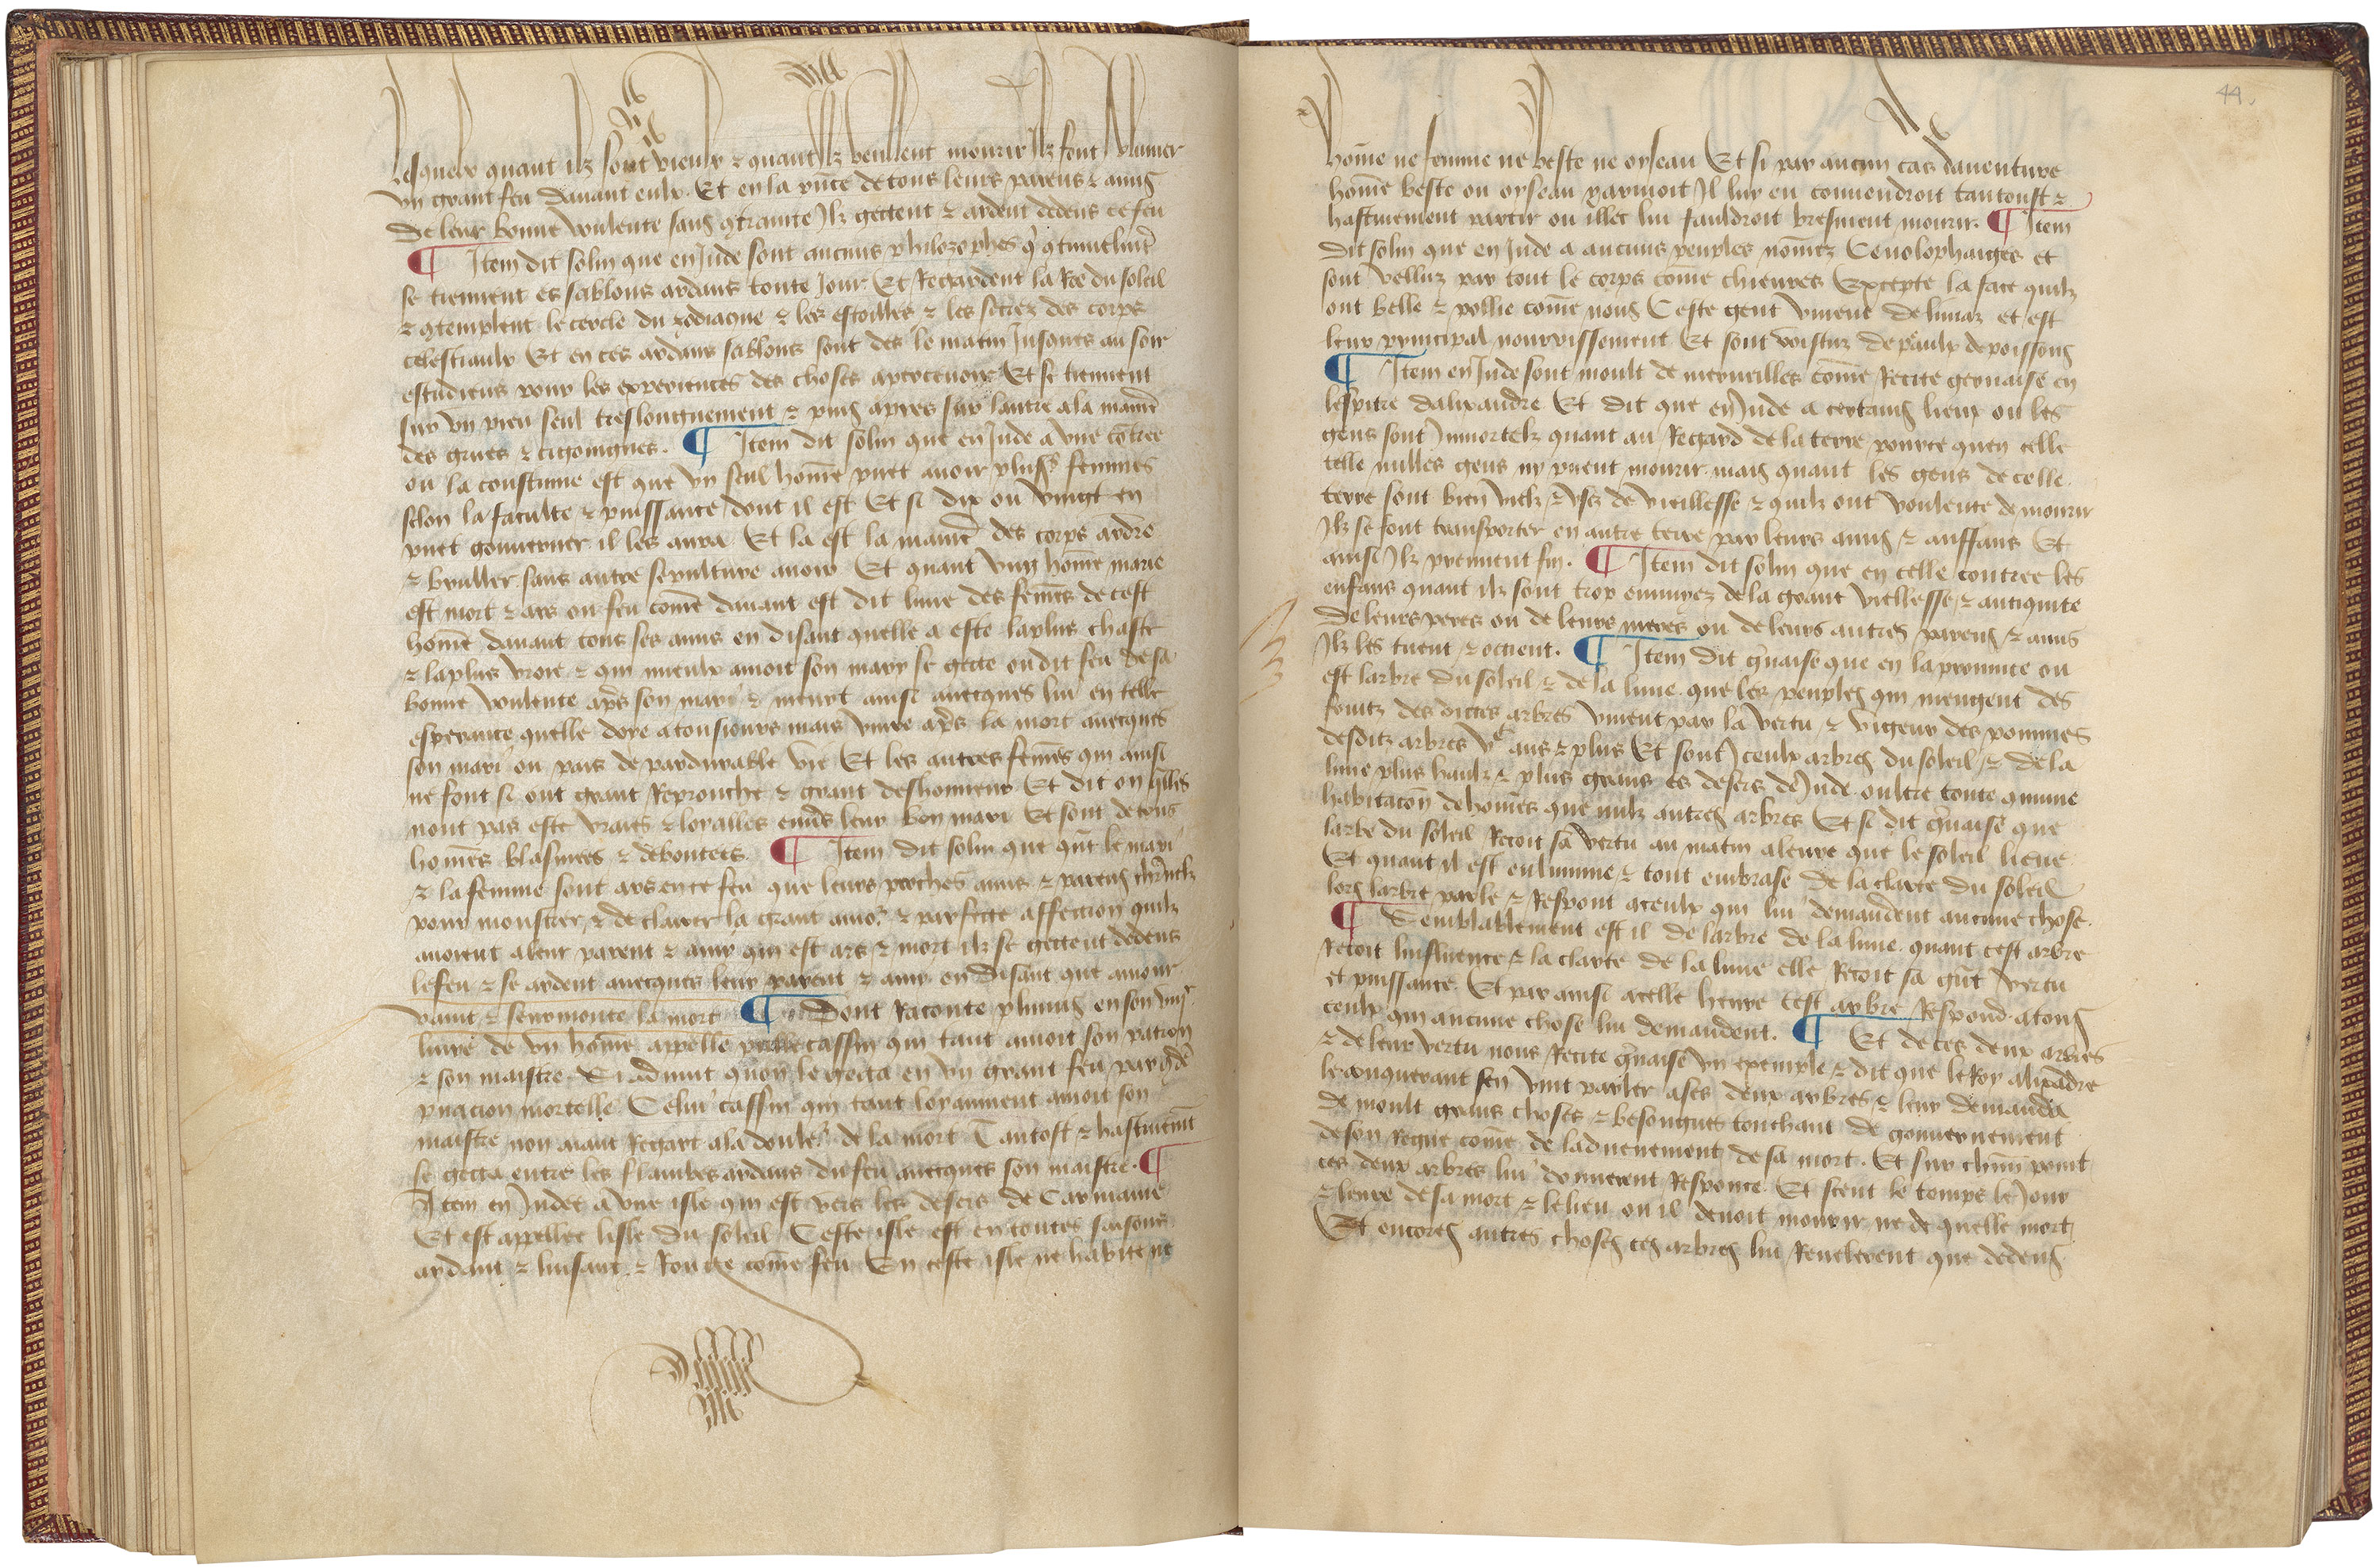 Lesquelx quant ilz sont vieulx ⁊ quant ilz veullent mourir Ilz font alumer
vn grant feu dauant eulx. Et en la pñce de tous leurs parens ⁊ amis
de leur bonne voulente sans 9trainte Ilz gettent ⁊ ardent dedens ce feu
¶ Item dit solin que en Inde sont aucuns philozophes
se tiennent es sablons ardans toute Jour Et Regardent la Roe du soleil
⁊ 9templent le cercle du zodiaque ⁊ les estoilles ⁊ les secrez des corps
celestiaulx Et en ces ardans sablons sont des le matin Jusques au soir
estudiens pour les experiences des choses apercevoir Et se tiennent
sur vn pieu seul treslonguement ⁊ puis apres sur lautre a la manier̄
des grues ⁊ cigoingnes. ¶ Item dit solin que en Inde a vne cōtree
ou la coustume est que vn seul hom̄e puet auoir plus̄s femmes
selon la faculte ⁊ puissance dont il est Et si dix ou vingt en
puet gouuerner il les aura Et la est la manier̄ des corps ardre
⁊ bruller sans autre sepulture auoir Et quant vng hom̄e marie
est mort ⁊ ars ou feu com̄e dauant est dit lune des fem̄es de cest
hom̄e dauant tous ses amis en disant quelle a este la plus chaste
⁊ la plus vraie ⁊ qui mieulx amoit son mary se gecte ou dit feu de sa
bonne voulente ap̄s son mari ⁊ meurt ainsi auecques lui en telle
esperance quelle doye a tousiours mais viure ap̄s la mort auecques
son mari ou pais de pardurable vie Et les autres fem̄es qui ainsi
ne font si ont grant Reprouche ⁊ grant deshonneur Et dit on qlles
nont pas este vraies ⁊ loyalles enūs leur bon mari Et sont de tous
hom̄es blasmees ⁊ deboutees. ¶ Item dit solin que qn̄t le mari
⁊ la femme sont ars en ce feu que leurs proches amis ⁊ parens
pour monstrer ⁊ declarer la grant amor ⁊ parfecte affection quilz
auoient a leur parent ⁊ amy qui est ars ⁊ mort ilz se gectent dedens
le feu ⁊ se ardent auecques leur parent ⁊ amy en disant que amour
vaint ⁊ seurmonte la mort ¶ Dont Raconte plinius en son
liure de vn hom̄e appelle cassin qui tant amoit son patron
⁊ son maistre Si aduint quon le gecta en vn grant feu par
mortelle Celui cassin qui tant loyaument amoit son
maistre non aiant Regart a la douler de la mort Tantost ⁊ hastiuemēt
se gecta entre les flambes ardans du feu auecques son maistre. ¶
Item en Indee a vne isle qui est vers les desers de Carmanie
Et est appellee lisle du soleil Ceste isle est en toutes saisons
ardant ⁊ luisant ⁊ Rouge com̄e feu En ceste isle ne habite ne
44.
hom̄e ne femme ne beste ne oyseau Et si par aucun cas dauenture
hom̄e beste ou oyseau y arriuoit Il luy en conuendroit tantoust ⁊
hastiuement partir ou illec lui fauldroit briefment mourir. ¶ Item
dit solin que en Inde a aucuns peuples nom̄ez Cenolophaiges et
sont velluz par tout le corps com̄e chieures Excepte la face quilz
ont belle ⁊ pollie com̄e nous Ceste gent viuent de limaz et est
leur principal nourrissement Et sont vestuz de peaulx de poissons
¶ Item en Inde sont moult de merueilles com̄e Recite geruaise en
lespitre dalixandre Et dit que en Inde a certains lieux ou les
gens sont Immortelz quant au Regard de la terre pource quen telle
telle nulles gens ny puent mourir mais quant les gens de celle
terre sont bien vielz ⁊ vsez de vieillesse ⁊ quilz ont voulente de mourir
Ilz se font transporter en autre terre par leurs amis ⁊ anffans Et
ainsi Ilz prennent fin. ¶ Item dit solin que en celle contree les
enfans quant ilz sont trop ennuyez de la grant viellesse ⁊ antiquite
de leurs peres ou de leurs meres ou de leurs autres parens ⁊ amis
Ilz les tuent ⁊ occient. ¶ Item dit gūaise que en la prouince ou
est larbre du soleil ⁊ de la lune que les peuples qui mengent des
fruitz des dictes arbres viuent par la vertu ⁊ vigeur des pommes
desditz arbres vc ans ⁊ plus Et sont Iceulx arbres du soleil ⁊ de la
lune plus haulz ⁊ plus grans es desers de Inde oultre toute
habitacōn de hom̄es que nulz autres arbres Et si dit gūaise que
larbre du soleil Recoit sa vertu au matin a leure que le soleil lieue
Et quant il est enlumine ⁊ tout embrase de la clarte du soleil
lors larbre parle ⁊ Respont a ceulx qui lui demandent aucune chose.
¶ Semblablement est il de larbre de la lune quant cest arbre
Recoit linfluence ⁊ la clarte de la lune elle Recoit sa gn̄t vertu
et puissance Et par ainsi a celle heure cest arbre Respond a tous
ceulx qui aucune chose lui demandent. ¶ Et de ces deux arbres
⁊ de leur vertu nous Recite gūaise vn exemple ⁊ dit que le Roy alixādre
le conquerant sen vint parler a ses deux arbres ⁊ leur demanda
de moult grans choses ⁊ besongnes touchant de gouuernement
de son Regne com̄e de laduenement de sa mort. Et sur chūn point
ces deux arbres lui donnerent Responce Et sceut le temps le Jour
⁊ leure de sa mort ⁊ le lieu ou il deuoit mourir ne de quelle mort
Et encores autres choses ces arbres lui Reuelerent que dedens